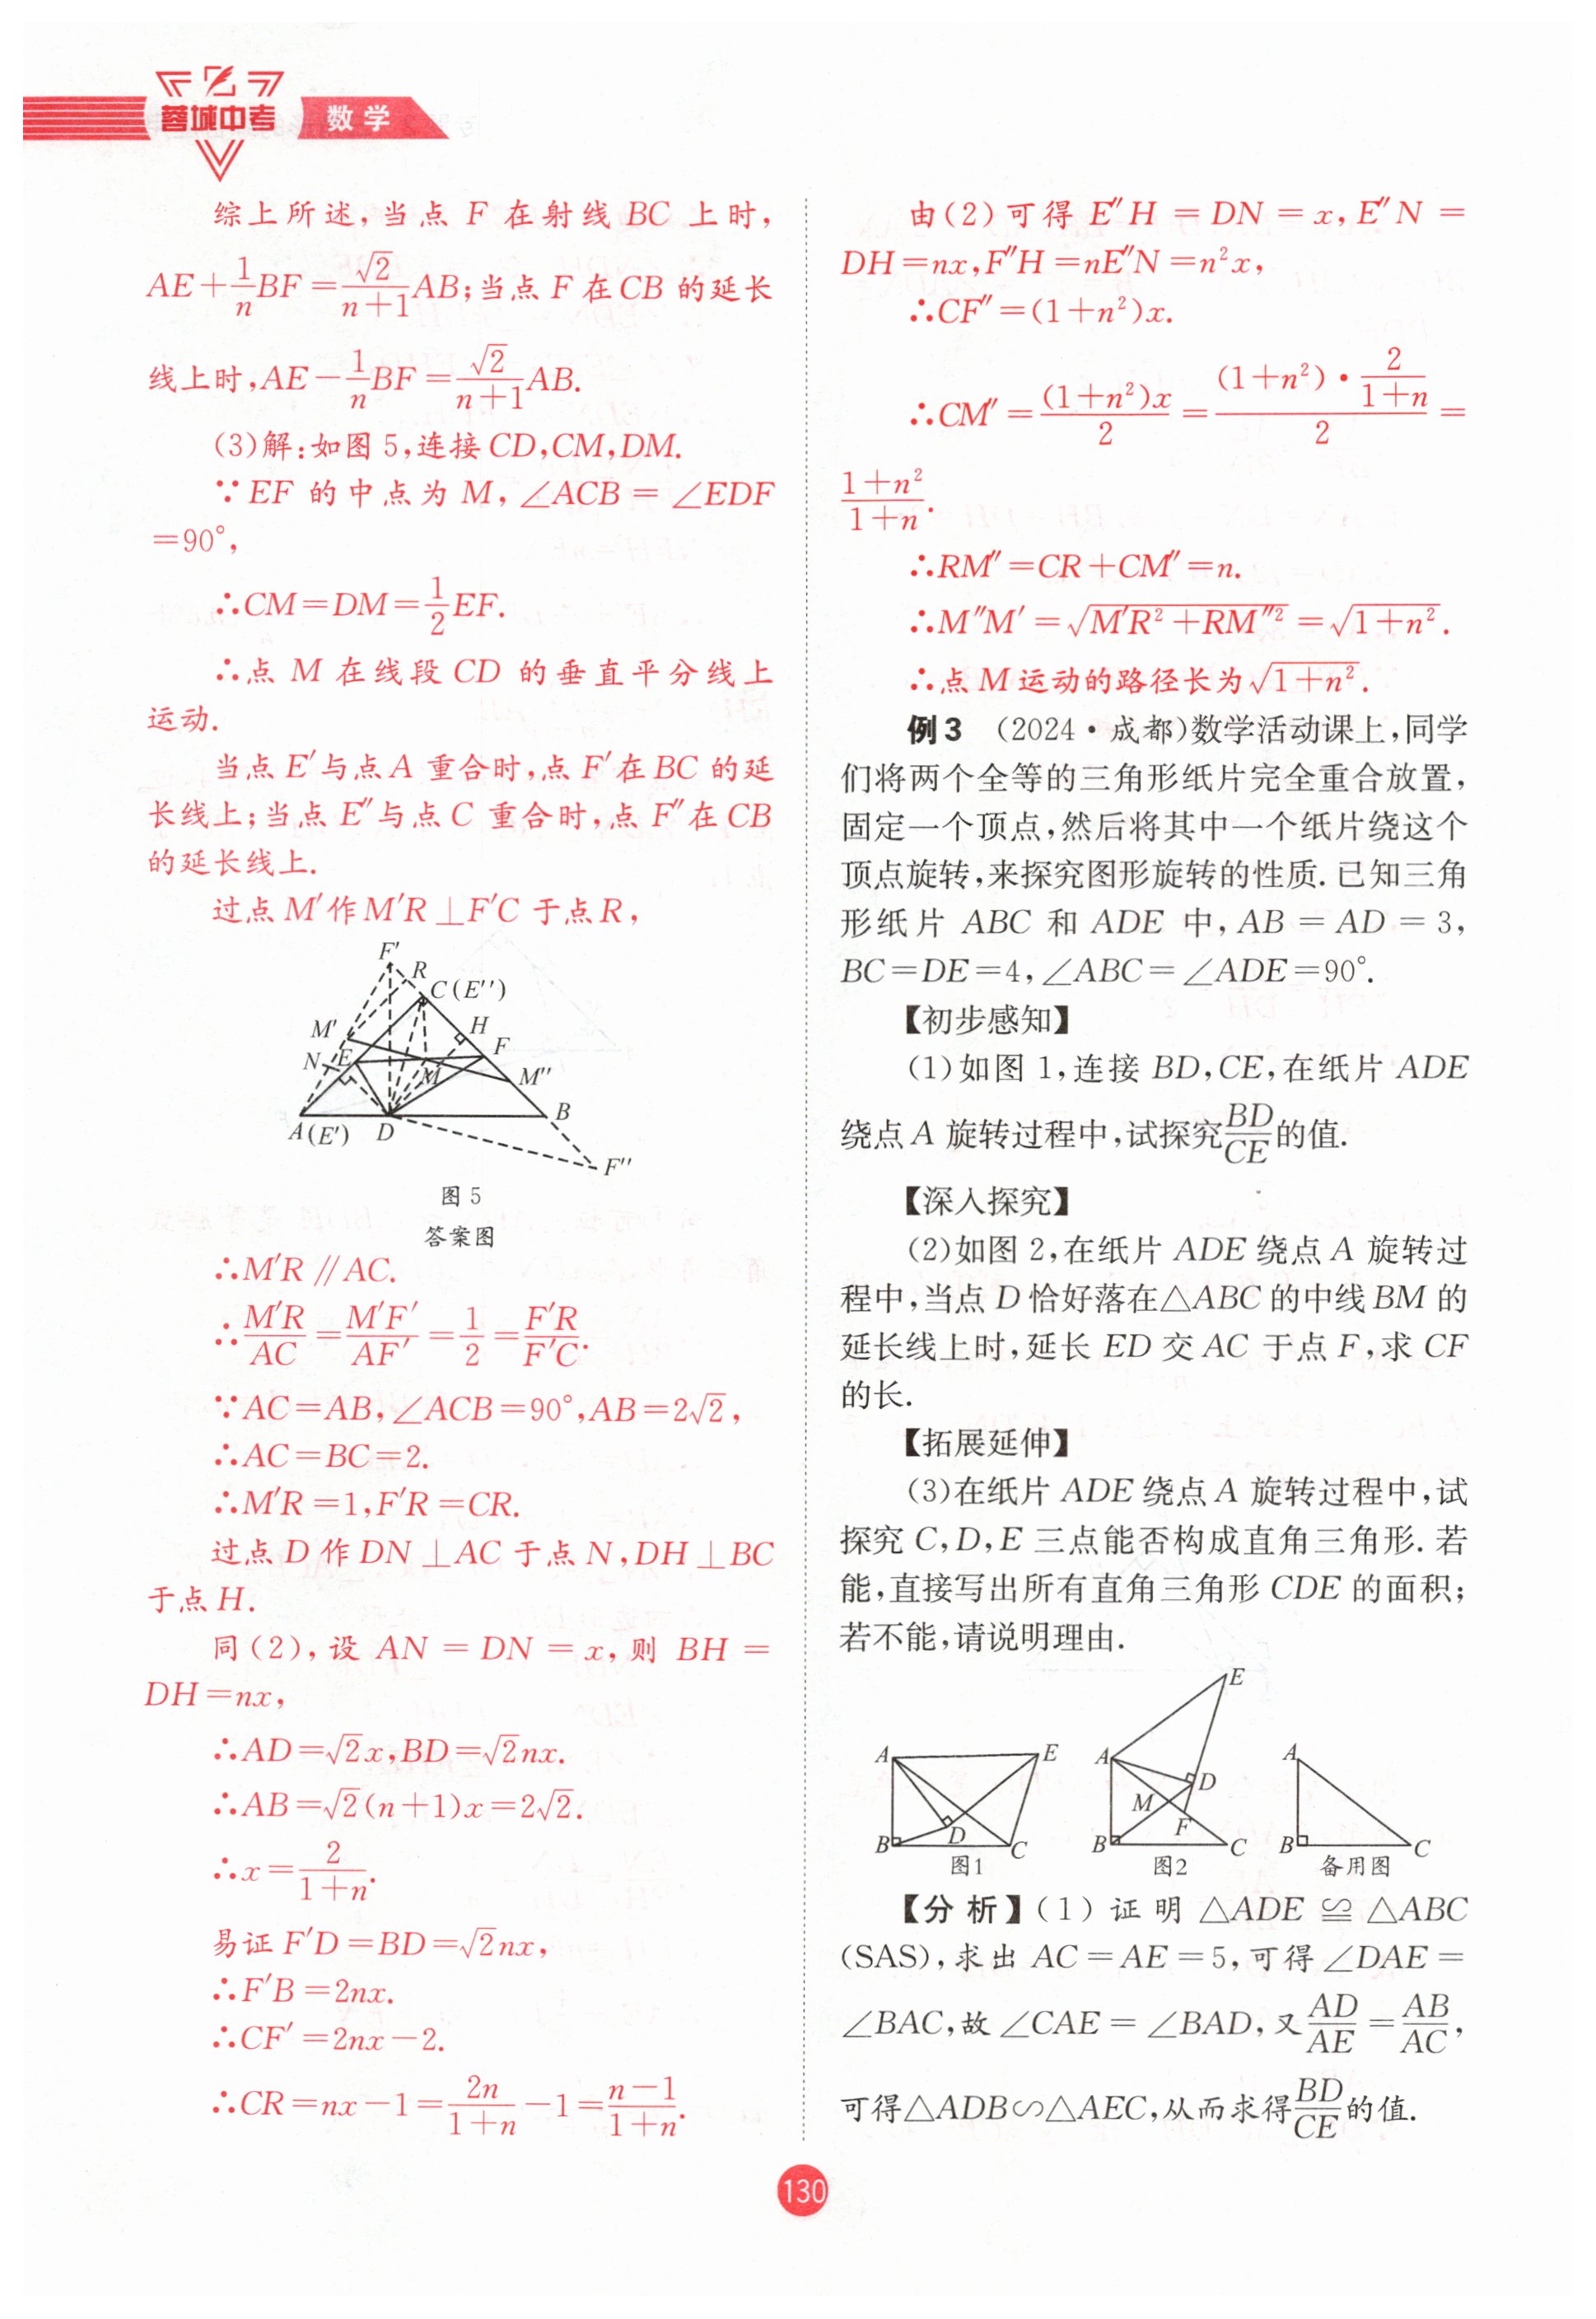 蓉城中考 数学
综上所述,当点 F 在射线 BC 上时,
AE+\frac{1}{n}BF=\frac{\sqrt{2}}{n+1}AB;当点 F 在 CB 的延长
线上时,AE-\frac{1}{n}BF=\frac{\sqrt{2}}{n+1}AB.
(3)解:如图 5,连接 CD,CM,DM.
∵EF 的中点为 M,∠ACB=∠EDF
=90°,
∴CM=DM=\frac{1}{2}EF.
∴点 M 在线段 CD 的垂直平分线上
运动.
当点 E′与点 A 重合时,点 F′在 BC 的延
长线上;当点 E″与点 C 重合时,点 F″在 CB
的延长线上.
过点 M′作 M′R⊥F′C 于点 R,
F′
R
C(E′′)
M′
H
N
E
F
M
M′′
B
A(E′) D
F′′
图 5
答案图
∴M′R∥AC.
∴\frac{M′R}{AC}=\frac{M′F′}{AF′}=\frac{1}{2}=\frac{F′R}{F′C}.
∵AC=AB,∠ACB=90°,AB=2\sqrt{2},
∴AC=BC=2.
∴M′R=1,F′R=CR.
过点 D 作 DN⊥AC 于点 N,DH⊥BC
于点 H.
同(2),设 AN=DN=x,则 BH=
DH=nx,
∴AD=\sqrt{2}x,BD=\sqrt{2}nx.
∴AB=\sqrt{2}(n+1)x=2\sqrt{2}.
∴x=\frac{2}{1+n}.
易证 F′D=BD=\sqrt{2}nx,
∴F′B=2nx.
∴CF′=2nx-2.
∴CR=nx-1=\frac{2n}{1+n}-1=\frac{n-1}{1+n}.
由(2)可得 E″H=DN=x,E″N=
DH=nx,F″H=nE″N=n²x,
∴CF″=(1+n²)x.
∴CM″=\frac{(1+n²)x}{2}=\frac{(1+n²)·\frac{2}{1+n}}{2}=
\frac{1+n²}{1+n}.
∴RM″=CR+CM″=n.
∴M″M′=\sqrt{M′R²+RM″²}=\sqrt{1+n²}.
∴点 M 运动的路径长为\sqrt{1+n²}.
例3 (2024·成都)数学活动课上,同学
们将两个全等的三角形纸片完全重合放置,
固定一个顶点,然后将其中一个纸片绕这个
顶点旋转,来探究图形旋转的性质.已知三角
形纸片 ABC 和 ADE 中,AB=AD=3,
BC=DE=4,∠ABC=∠ADE=90°.
【初步感知】
(1)如图 1,连接 BD,CE,在纸片 ADE
绕点 A 旋转过程中,试探究\frac{BD}{CE}的值.
【深入探究】
(2)如图 2,在纸片 ADE 绕点 A 旋转过
程中,当点 D 恰好落在△ABC 的中线 BM 的
延长线上时,延长 ED 交 AC 于点 F,求 CF
的长.
【拓展延伸】
(3)在纸片 ADE 绕点 A 旋转过程中,试
探究 C,D,E 三点能否构成直角三角形.若
能,直接写出所有直角三角形 CDE 的面积;
若不能,请说明理由.
A E
D
B C
图1
E
A
D
M
F
B C
图2
A
B C
备用图
【分析】(1)证明△ADE≌△ABC
(SAS),求出 AC=AE=5,可得∠DAE=
∠BAC,故∠CAE=∠BAD,又\frac{AD}{AE}=\frac{AB}{AC},
可得△ADB∽△AEC,从而求得\frac{BD}{CE}的值.
130